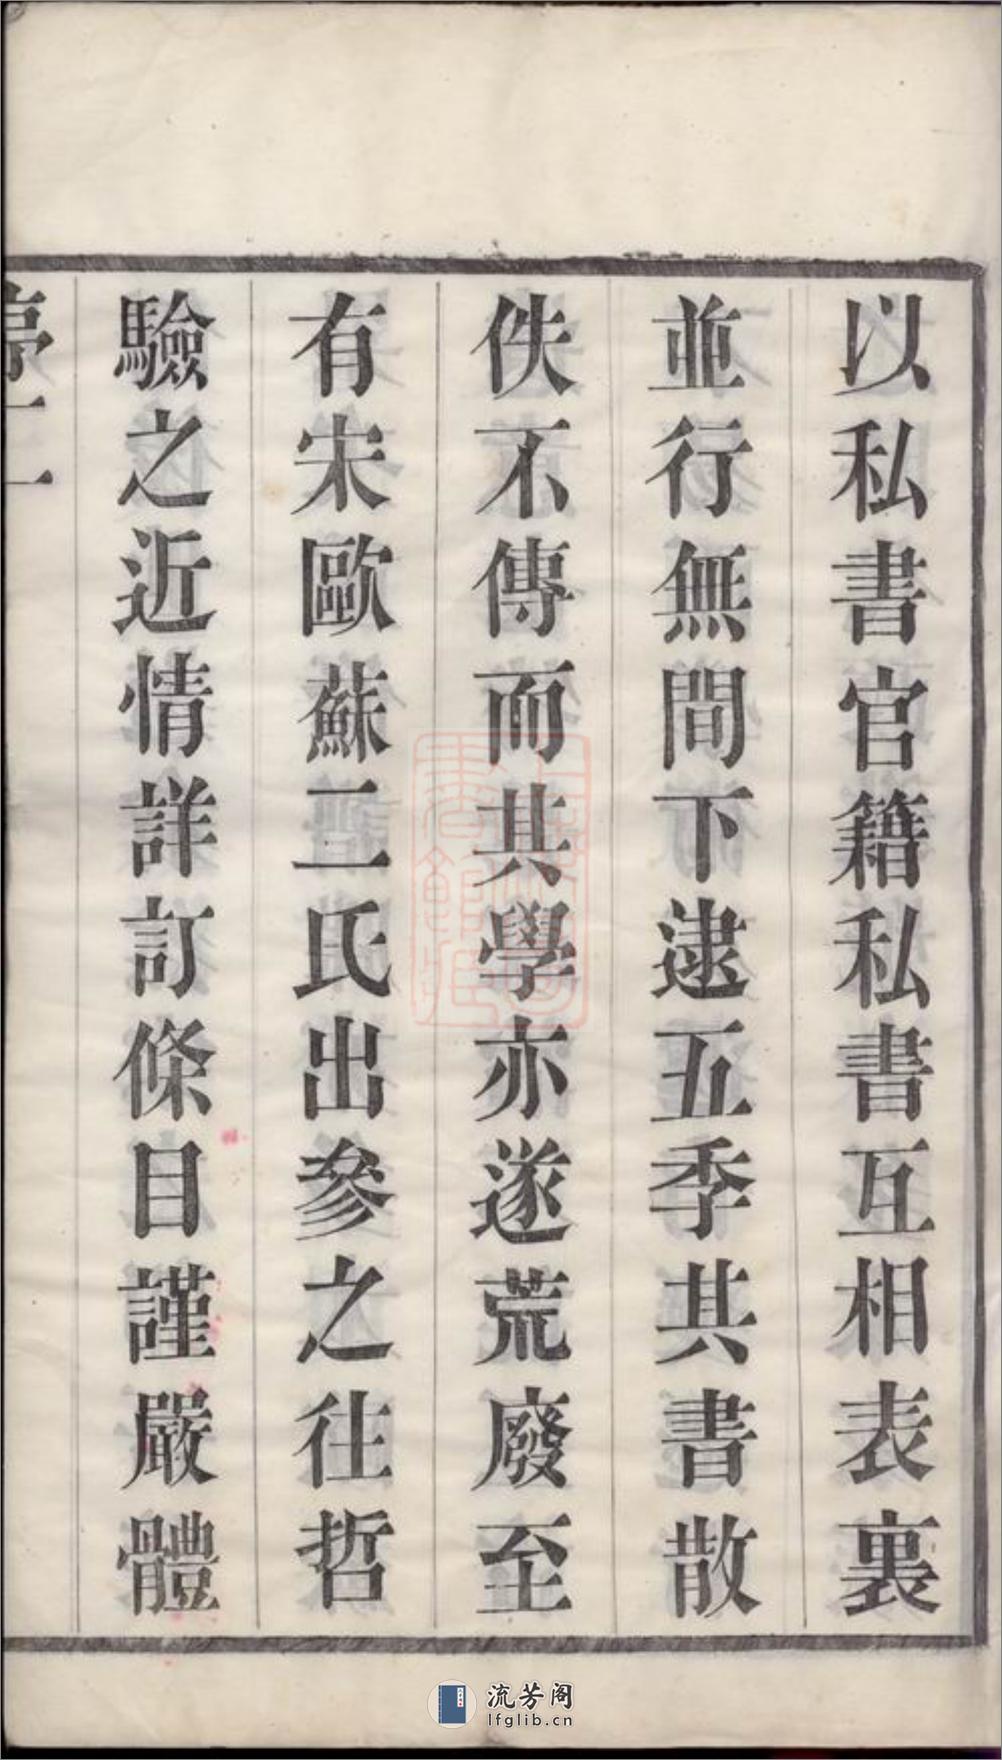 以私書官籍私書互相表裏
並行無間下逮五季其書散
佚不傳而其學亦遂荒廢至
有宋歐蘇二氏出參之往哲
驗之近情詳訂條目謹嚴體
流芳阁
lfglib.cn